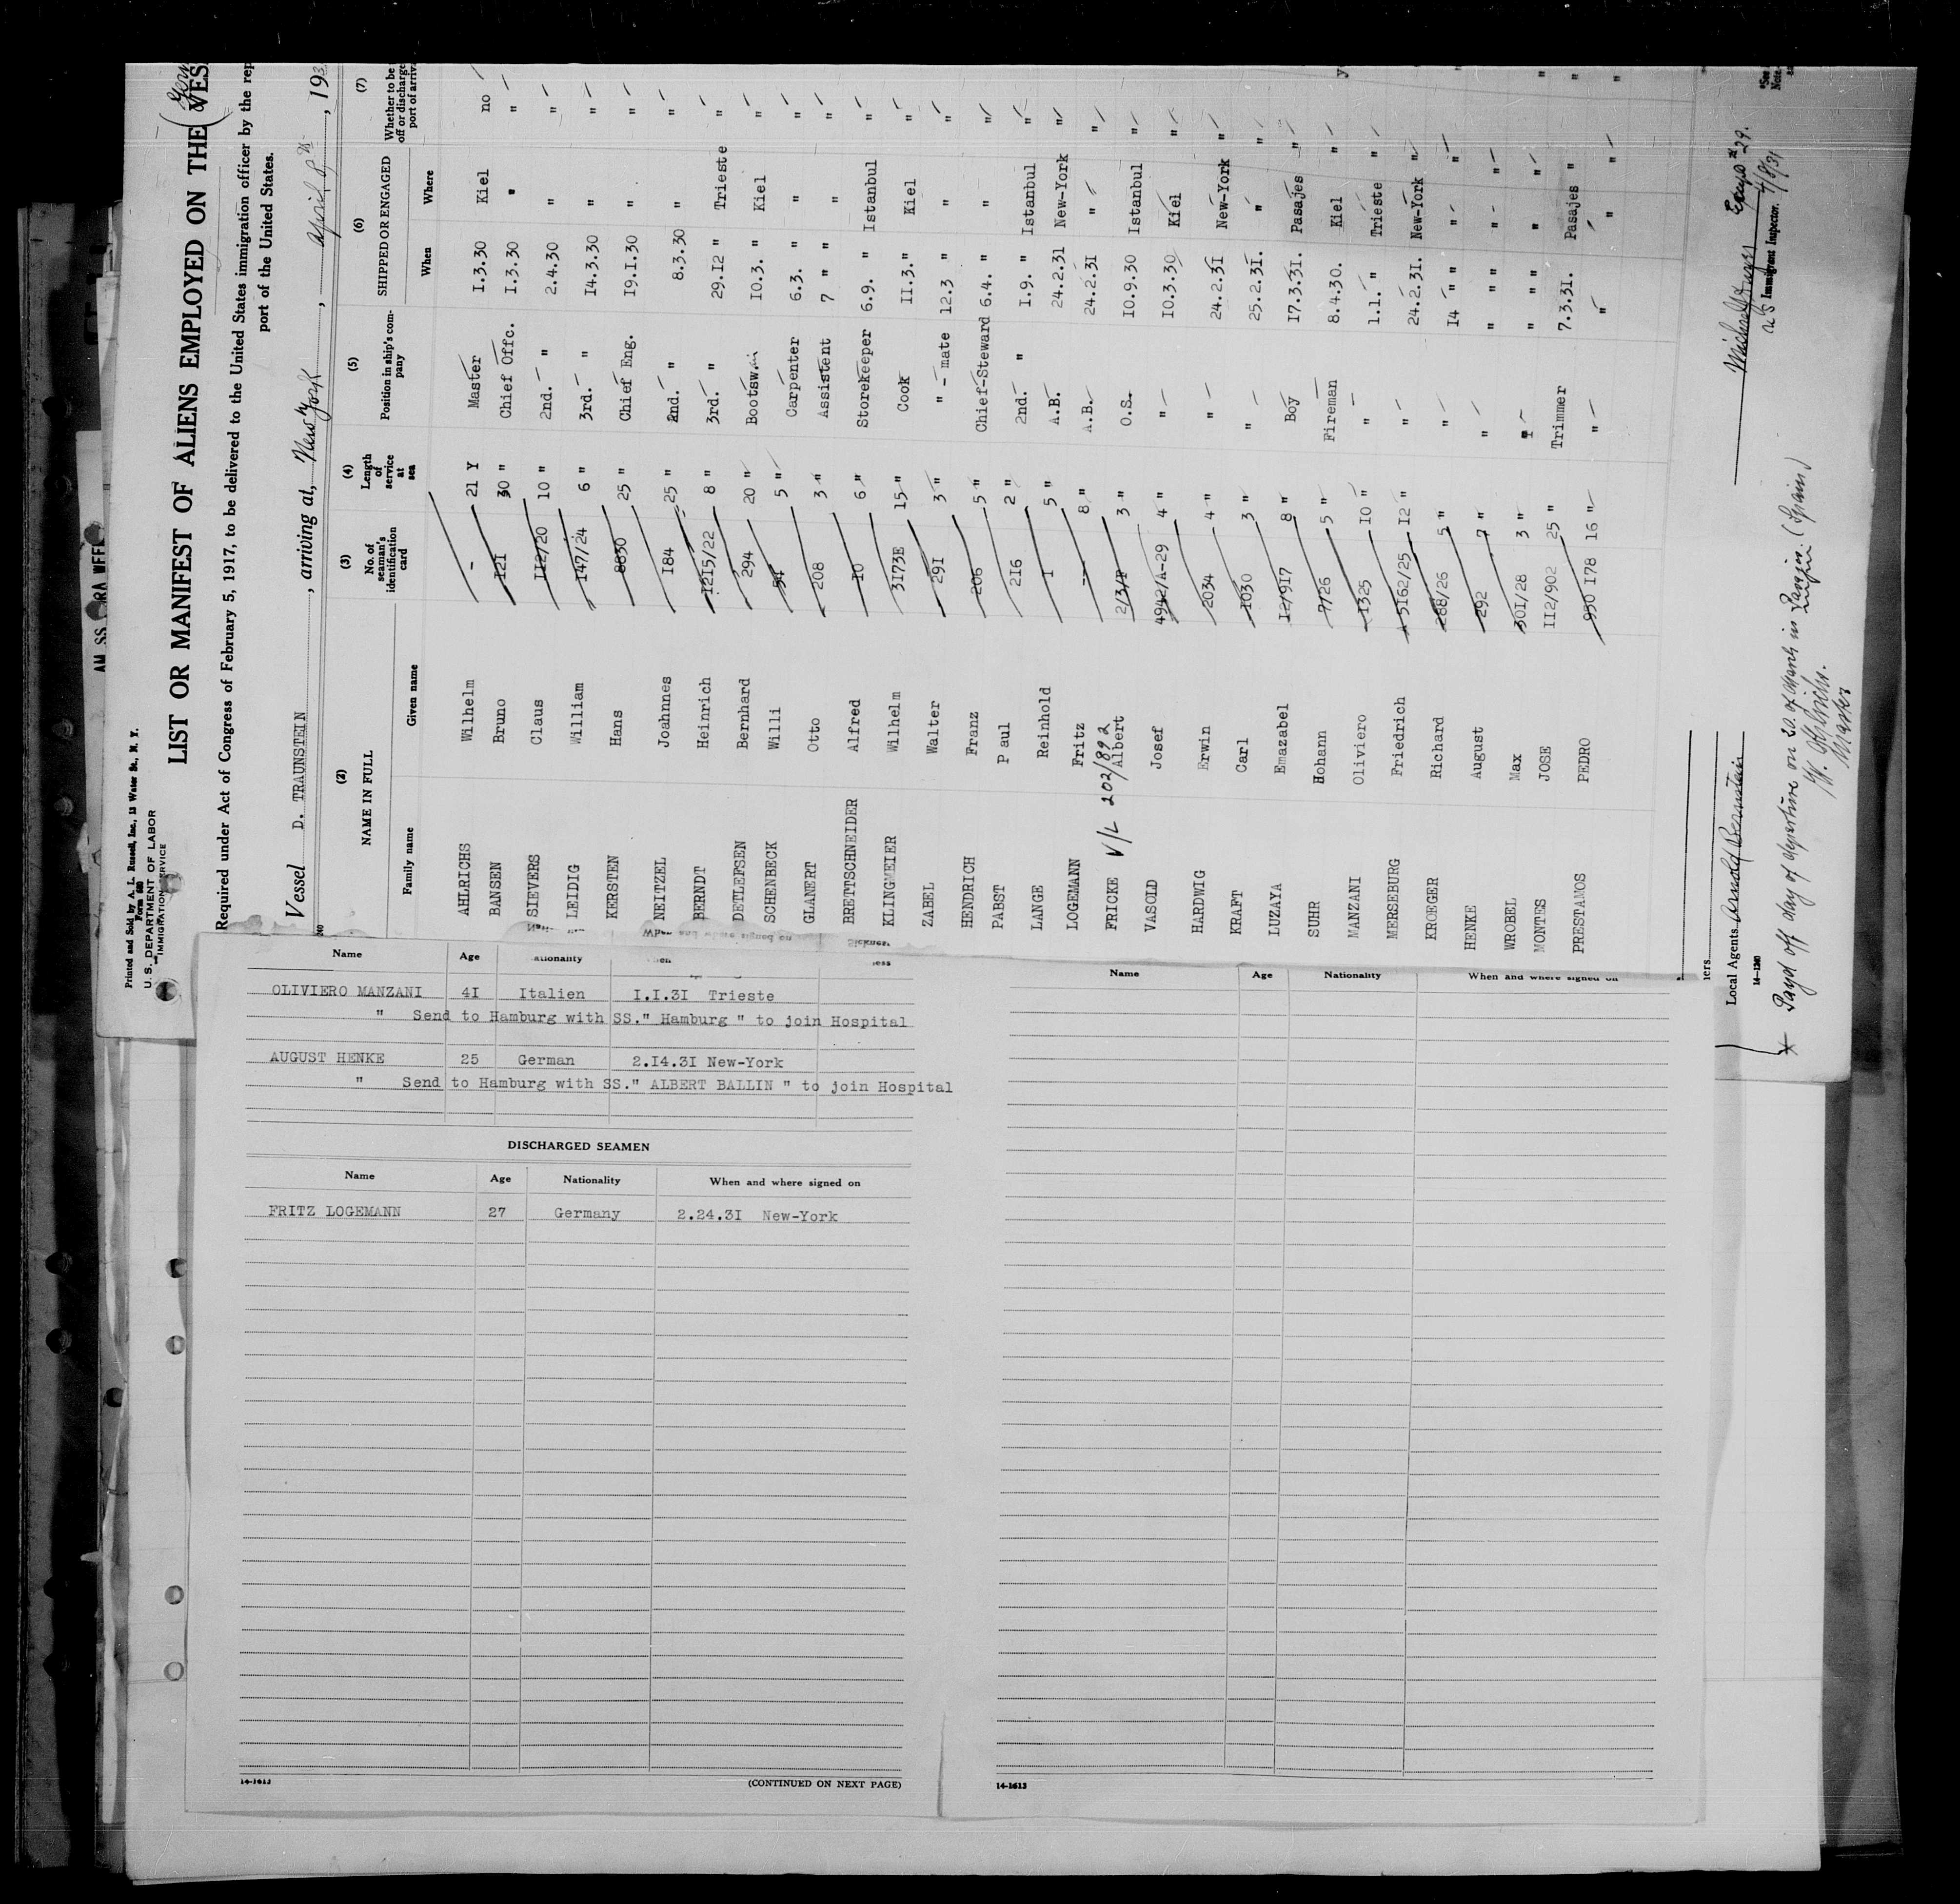 Printed and Sold by A. L. Russell, Inc., 13 Water St., N. Y.
Form 680
U. S. DEPARTMENT OF LABOR
IMMIGRATION SERVICE
LIST OR MANIFEST OF ALIENS EMPLOYED ON THE VES
Required under Act of Congress of February 5, 1917, to be delivered to the United States immigration officer by the rep
port of the United States.
Vessel D. TRAUNSTEIN, arriving at, New York, April 8th, 193
(2) (3) (4) (5) (6) (7)
NAME IN FULL No. of seaman's identification card Length of service at sea Position in ship's company SHIPPED OR ENGAGED Whether to be off or discharge port of arriva
Family name Given name When Where
AHLRICHS Wilhelm - 21 Y Master 1.3.30 Kiel no
BANSEN Bruno 121 30 " Chief Offc. 1.3.30 " "
SIEVERS Claus 112/20 10 " 2nd. " 2.4.30 " "
LEIDIG William 147/24 6 " 3rd. " 14.3.30 " "
KERSTEN Hans 8830 25 " Chief Eng. 19.1.30 " "
NEITZEL Joahnnes 184 25 " 2nd. " 8.3.30 " "
BERNDT Heinrich 1215/22 8 " 3rd. " 29.12 " Trieste "
DETLEFSEN Bernhard 294 20 " Bootsw. 10.3. " Kiel "
SCHENBECK Willi 54 5 " Carpenter 6.3. " " "
GLANERT Otto 208 3 " Assistent 7 " " " "
BRETTSCHNEIDER Alfred 10 6 " Storekeeper 6.9. " Istanbul "
KLINGMEIER Wilhelm 3173E 15 " Cook 11.3." Kiel "
ZABEL Walter 291 3 " " - mate 12.3 " " "
HENDRICH Franz 206 5 " Chief-Steward 6.4. " " "
PABST P aul 216 2 " 2nd. " 1.9. " Istanbul "
LANGE Reinhold 1 5 " A.B. 24.2.31 New-York "
LOGEMANN Fritz -- 8 " A.B. 24.2.31 " "
V/L 202/892
FRICKE Albert 2/3/P 3 " O.S. 10.9.30 Istanbul "
VASOLD Josef 4942/A-29 4 " " 10.3.30 Kiel "
HARDWIG Erwin 2034 4 " " 24.2.31 New-York "
KRAFT Carl 1030 3 " " 25.2.31. " "
LUZAYA Emazabel 12/917 8 " Boy 17.3.31. Pasajes "
SUHR Hohann 7/26 5 " Fireman 8.4.30. Kiel "
MANZANI Oliviero 1325 10 " " 1.1. " Trieste "
MERSEBURG Friedrich A 5162/25 12 " " 24.2.31. New-York "
KROEGER Richard 288/26 5 " " 14 " " " "
HENKE August 292 7 " " " " " "
WROBEL Max 301/28 3 " " " " " "
MONTES JOSE 112/902 25 " Trimmer 7.3.31. Pasajes "
PRESTAMOS PEDRO 930 178 16 " " " " "
Local Agents Arnold Bernstein
14-1240
Immigrant Inspector. 4/8/31
* Payd off day of departure on 20. of March in Pasajes. (Spain)
W. Ahlrichs.
Master
Name Age ationality hen less
OLIVIERO MANZANI 4I Italien I.I.3I Trieste
" Send to Hamburg with SS." Hamburg " to join Hospital
AUGUST HENKE 25 German 2.I4.3I New-York
" Send to Hamburg with SS." ALBERT BALLIN " to join Hospital
DISCHARGED SEAMEN
Name Age Nationality When and where signed on
FRITZ LOGEMANN 27 Germany 2.24.3I New-York
14-1613 (CONTINUED ON NEXT PAGE)
Name Age Nationality When and where signed on
14-1613